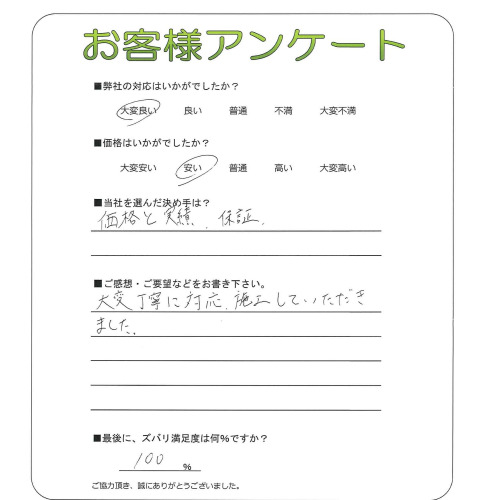 お客様アンケート
■弊社の対応はいかがでしたか?
大変良い 良い 普通 不満 大変不満
■価格はいかがでしたか?
大変安い 安い 普通 高い 大変高い
■当社を選んだ決め手は?
価格と実績、保証。
■ご感想・ご要望などをお書き下さい。
大変丁寧に対応、施工していただき
ました。
■最後に、ズバリ満足度は何%ですか?
100 %
ご協力頂き、誠にありがとうございました。